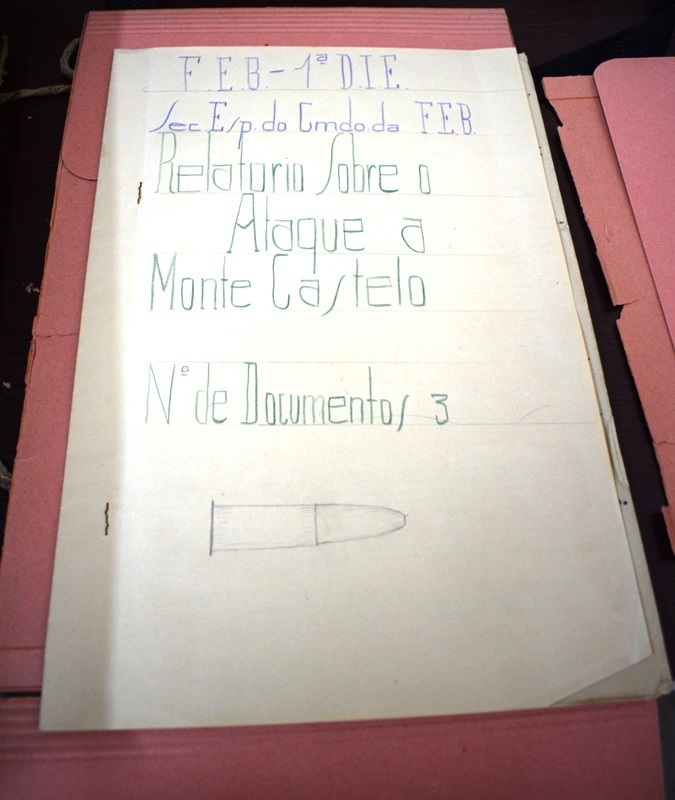 F.E.B - 1ª D.I.E.
Sec. Esp. do Cmdo. da FEB.
Relatorio Sobre o
Ataque a
Monte Castelo
Nº de Documentos 3